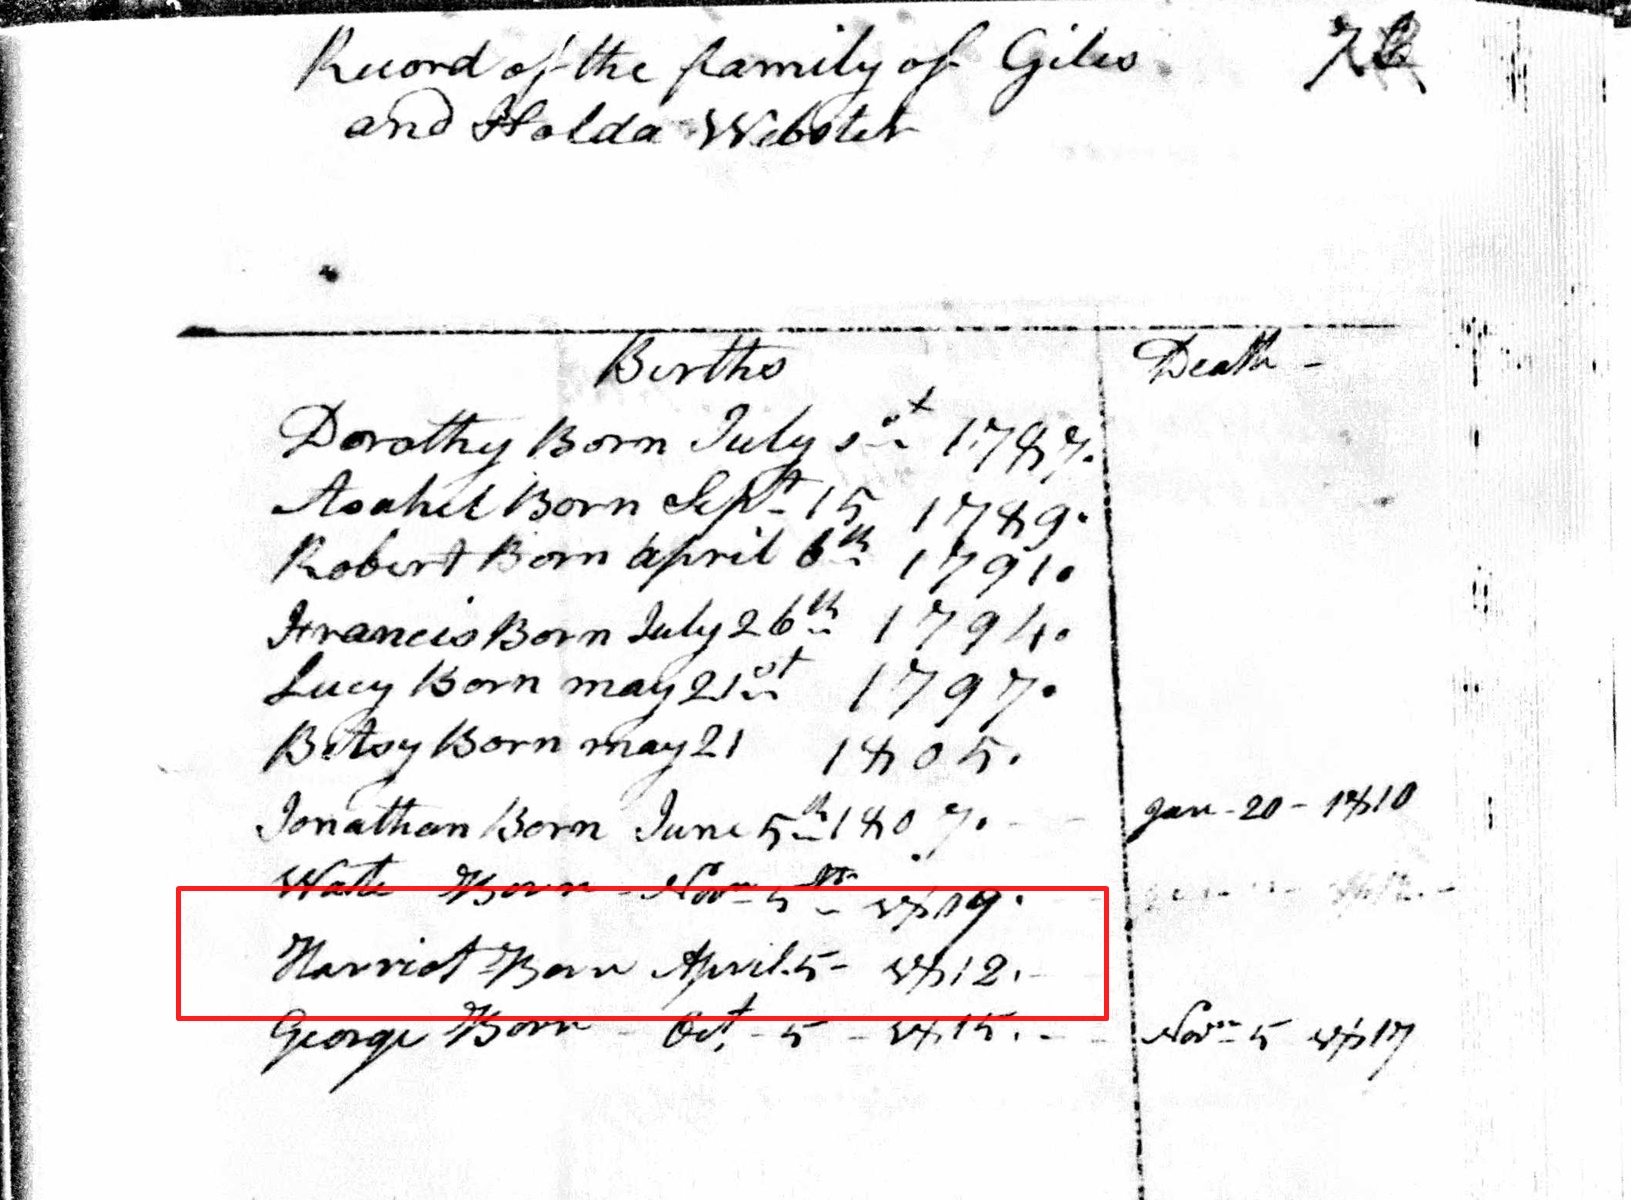 Record of the family of Giles
and Holda Webster
Births Death -
Dorothy Born July 1st 1787.
Asahel Born Sept 15 1789.
Robert Born april 6th 1791.
Francis Born July 26th 1794.
Lucy Born may 21st 1797.
Betsy Born may 21 1805.
Jonathan Born June 5th 1807. - - Jan - 20 - 1810
Born - Novm 5th 1809. - -
Harriot Born April 5 - 1812. -
George Born - Oct - 5 - 1815. - - Novm 5 1817